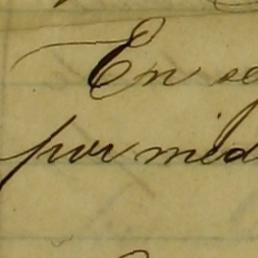 En se
por med